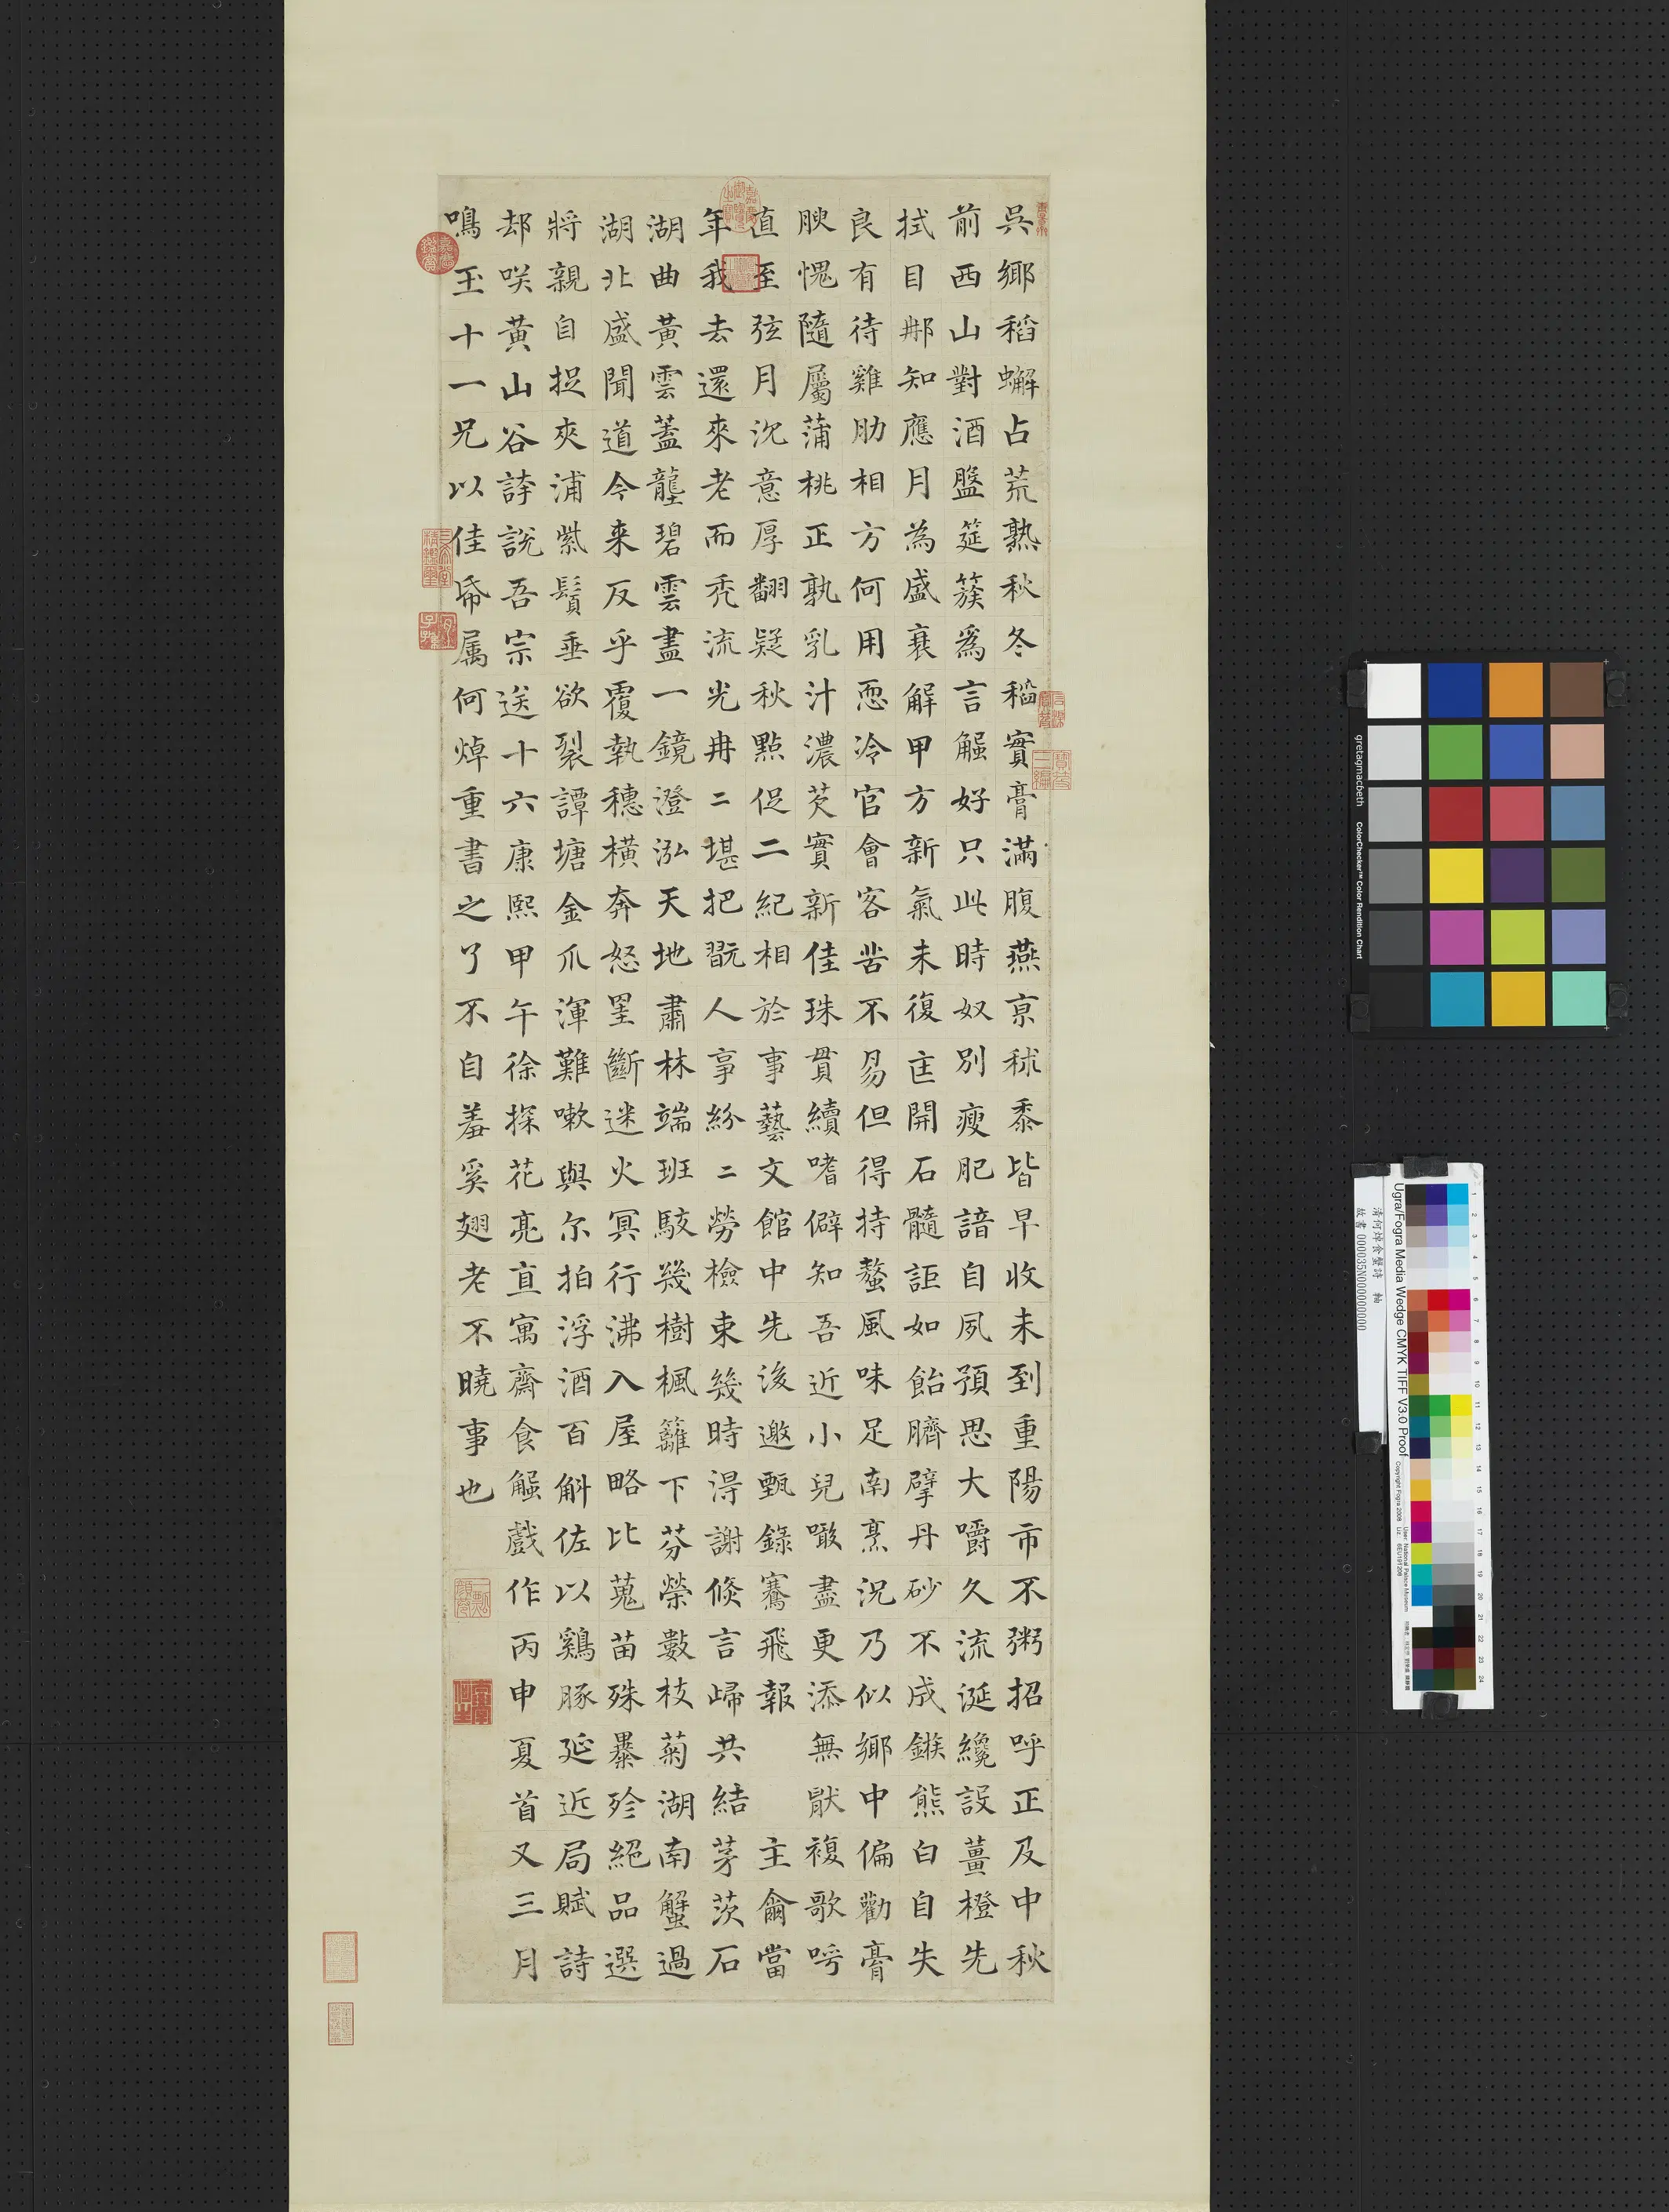 吳鄉稻蠏占荒熟秋冬稻實膏滿腹燕京秫黍皆早收未到重陽市不粥招呼正及中秋
前西山對酒盤筵簇爲言蟹好只此時奴別瘦肥諳自夙預思大嚼久流涎纔設薑橙先
拭目那知應月為盛衰解甲方新氣未復匡開石髓詎如飴臍擘丹砂不成鏃熊白自失
良有待雞肋相方何用恧冷官會客苦不易但得持螯風味足南烹況乃似鄉中偏勸膏
腴愧隨屬蒲桃正孰乳汁濃芡實新佳珠貫續嗜僻知吾近小兒噉盡更添無猒複歌呼
直至弦月沉意厚翻疑秋點促二紀相於事藝文館中先後邀甄錄騫飛報主龠當
年我去還來老而禿流光冉二堪把翫人事紛二勞檢束幾時得謝倏言歸共結茅茨石
湖曲黃雲蓋隴碧雲盡一鏡澄泓天地肅林端班駮幾樹楓籬下芬榮數枝菊湖南蟹過
湖北盛聞道今来反乎覆執穗橫奔怒罣斷迷火冥行沸入屋略比蒐苗殊暴殄絕品選
將親自捉夾浦紫鬚垂欲裂譚塘金爪渾難嗽與尔拍浮酒百斛佐以鷄豚延近局賦詩
却咲黃山谷誇說吾宗送十六康熙甲午徐探花亮直寓齋食蟹戲作丙申夏首又三月
鳴玉十一兄以佳帋属何焯重書之了不自羞奚翅老不曉事也
gretagmacbeth ColorChecker™ Color Rendition Chart
Ugra/Fogra Media Wedge CMYK TIFF V3.0 Proof
清何焯食蟹詩 軸
故書 000035N000000000